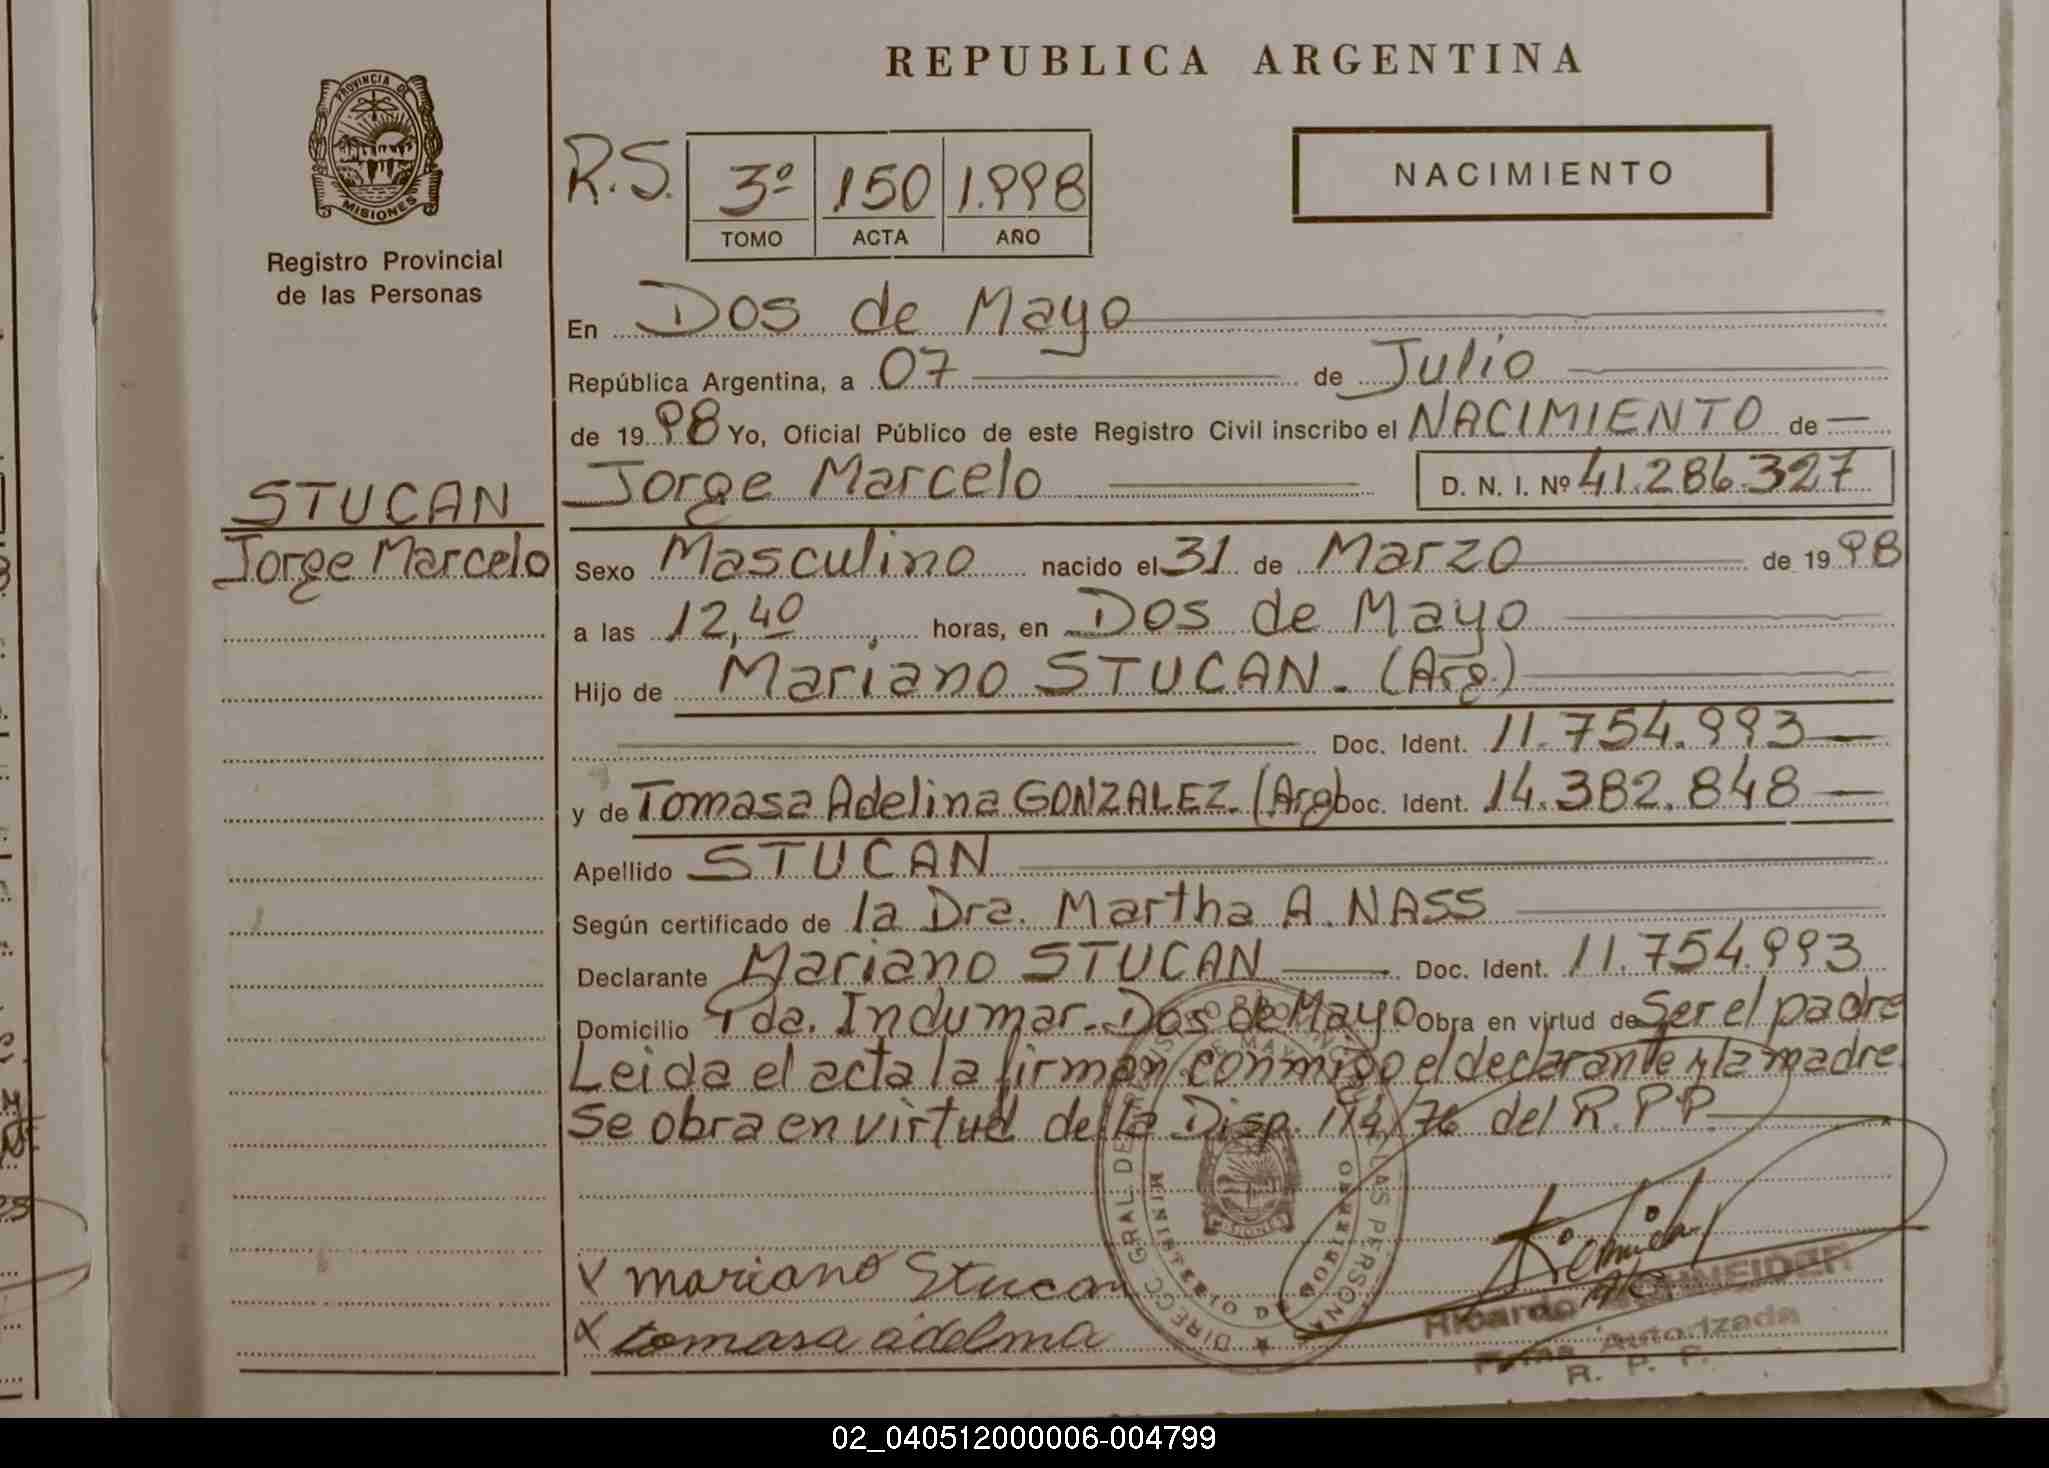 REPUBLICA ARGENTINA
PROVINCIA DE
MISIONES
Registro Provincial
de las Personas
R.S. 3º 150 1.998
TOMO ACTA AÑO
NACIMIENTO
En Dos de Mayo
República Argentina, a 07 de Julio
de 1998 Yo, Oficial Público de este Registro Civil inscribo el NACIMIENTO de
Jorge Marcelo D. N. I. Nº 41.286.327
STUCAN
Jorge Marcelo
Sexo Masculino nacido el 31 de Marzo de 1998
a las 12,40 horas, en Dos de Mayo
Hijo de Mariano STUCAN. (Arg.)
Doc. Ident. 11.754.993
y de Tomasa Adelina GONZALEZ. (Arg) Doc. Ident. 14.382.848
Apellido STUCAN
Según certificado de la Dra. Martha A. NASS
Declarante Mariano STUCAN Doc. Ident. 11.754.993
Domicilio Pda. Indumar. Dos de Mayo Obra en virtud de Ser el padre
Leida el acta la firman conmigo el declarante y la madre.
Se obra en virtud de la Disp. 114/76 del R.P.P.
mariano Stucan
tomasa adelma
DIRECC GRAL. DE LAS PERSONAS
MINISTERIO DE GOBIERNO
MISIONES
Ricardo SCHNEIDER
Firma Autorizada
R. P. P.
02_040512000006-004799